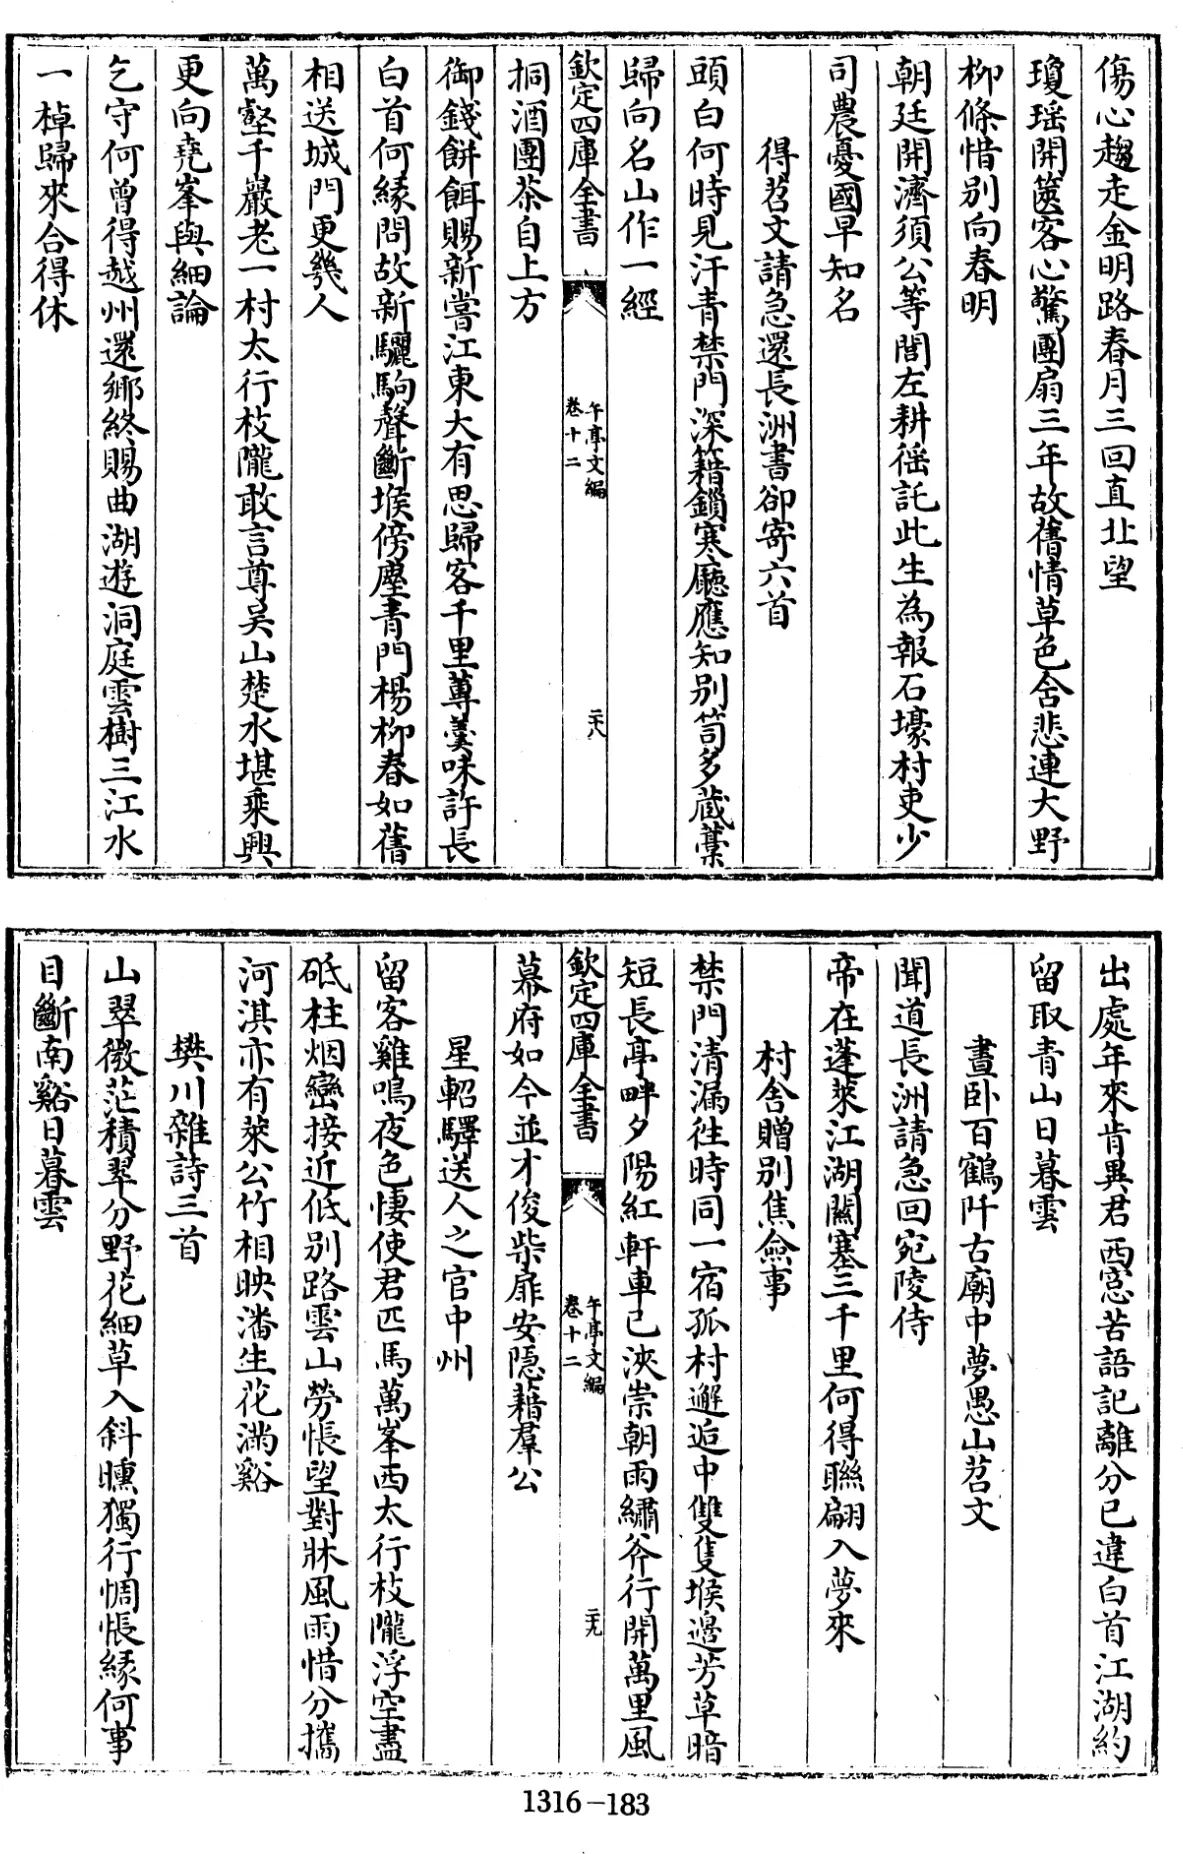 傷心趨走金明路春月三回直北望
瓊瑶開篋客心驚團扇三年故舊情草色含悲連大野
柳條惜别向春明
朝廷開濟須公等閭左耕徭託此生為報石壕村吏少
司農憂國早知名
得苕文請急還長洲書卻寄六首
頭白何時見汗青禁門深籍鎖寒廳應知别笥多蔵藁
歸向名山作一經
欽定四庫全書
午亭文編
卷十二
二十八
挏酒團茶自上方
御錢餅餌賜新嘗江東大有思歸客千里蓴羮味許長
白首何縁問故新驪駒聲斷堠傍塵青門楊柳春如舊
相送城門更幾人
萬壑千巖老一村太行枝隴敢言尊吴山楚水堪乘興
更向堯峯與細論
乞守何曾得越州還鄉終賜曲湖遊洞庭雲樹三江水
一棹歸來合得休
出處年來肯異君西窻苦語記離分已違白首江湖約
留取青山日暮雲
晝卧百鶴阡古廟中夢愚山苕文
聞道長洲請急回宛陵侍
帝在蓬萊江湖闗塞三千里何得聯翩入夢來
村舍贈别焦僉事
禁門清漏徃時同一宿孤村邂逅中雙隻堠邉芳草暗
短長亭畔夕陽紅軒車已浹崇朝雨繡斧行開萬里風
欽定四庫全書
午亭文編
卷十二
二十九
幕府如今並才俊柴扉安隠藉羣公
星軺驛送人之官中州
留客雞鳴夜色悽使君匹馬萬峯西太行枝隴浮空盡
砥柱烟巒接近低别路雲山勞悵望對牀風雨惜分攜
河淇亦有菉公竹相映潘生花滿谿
樊川雜詩三首
山翠微茫積翠分野花細草入斜曛獨行惆悵縁何事
目斷南谿日暮雲
1316-183